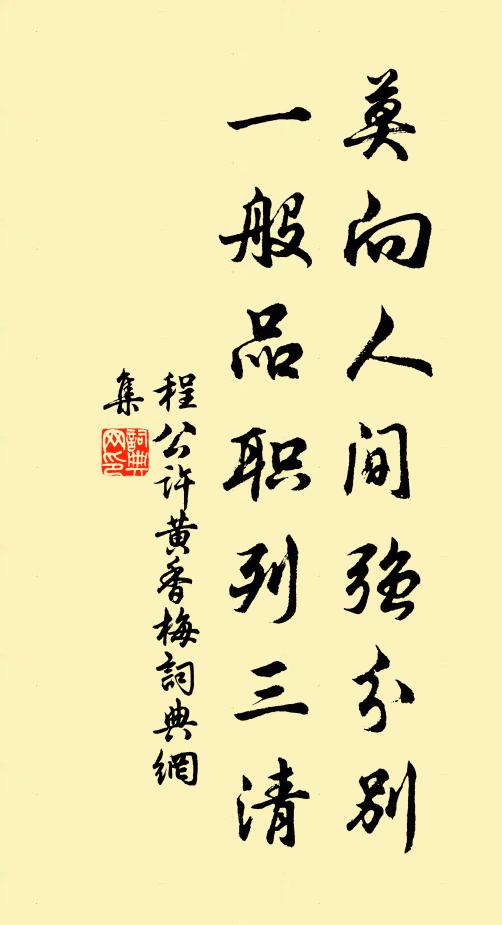 莫向人间强分别
一般品职列三清
程公许黄香梅詞典網
集
詞典网印